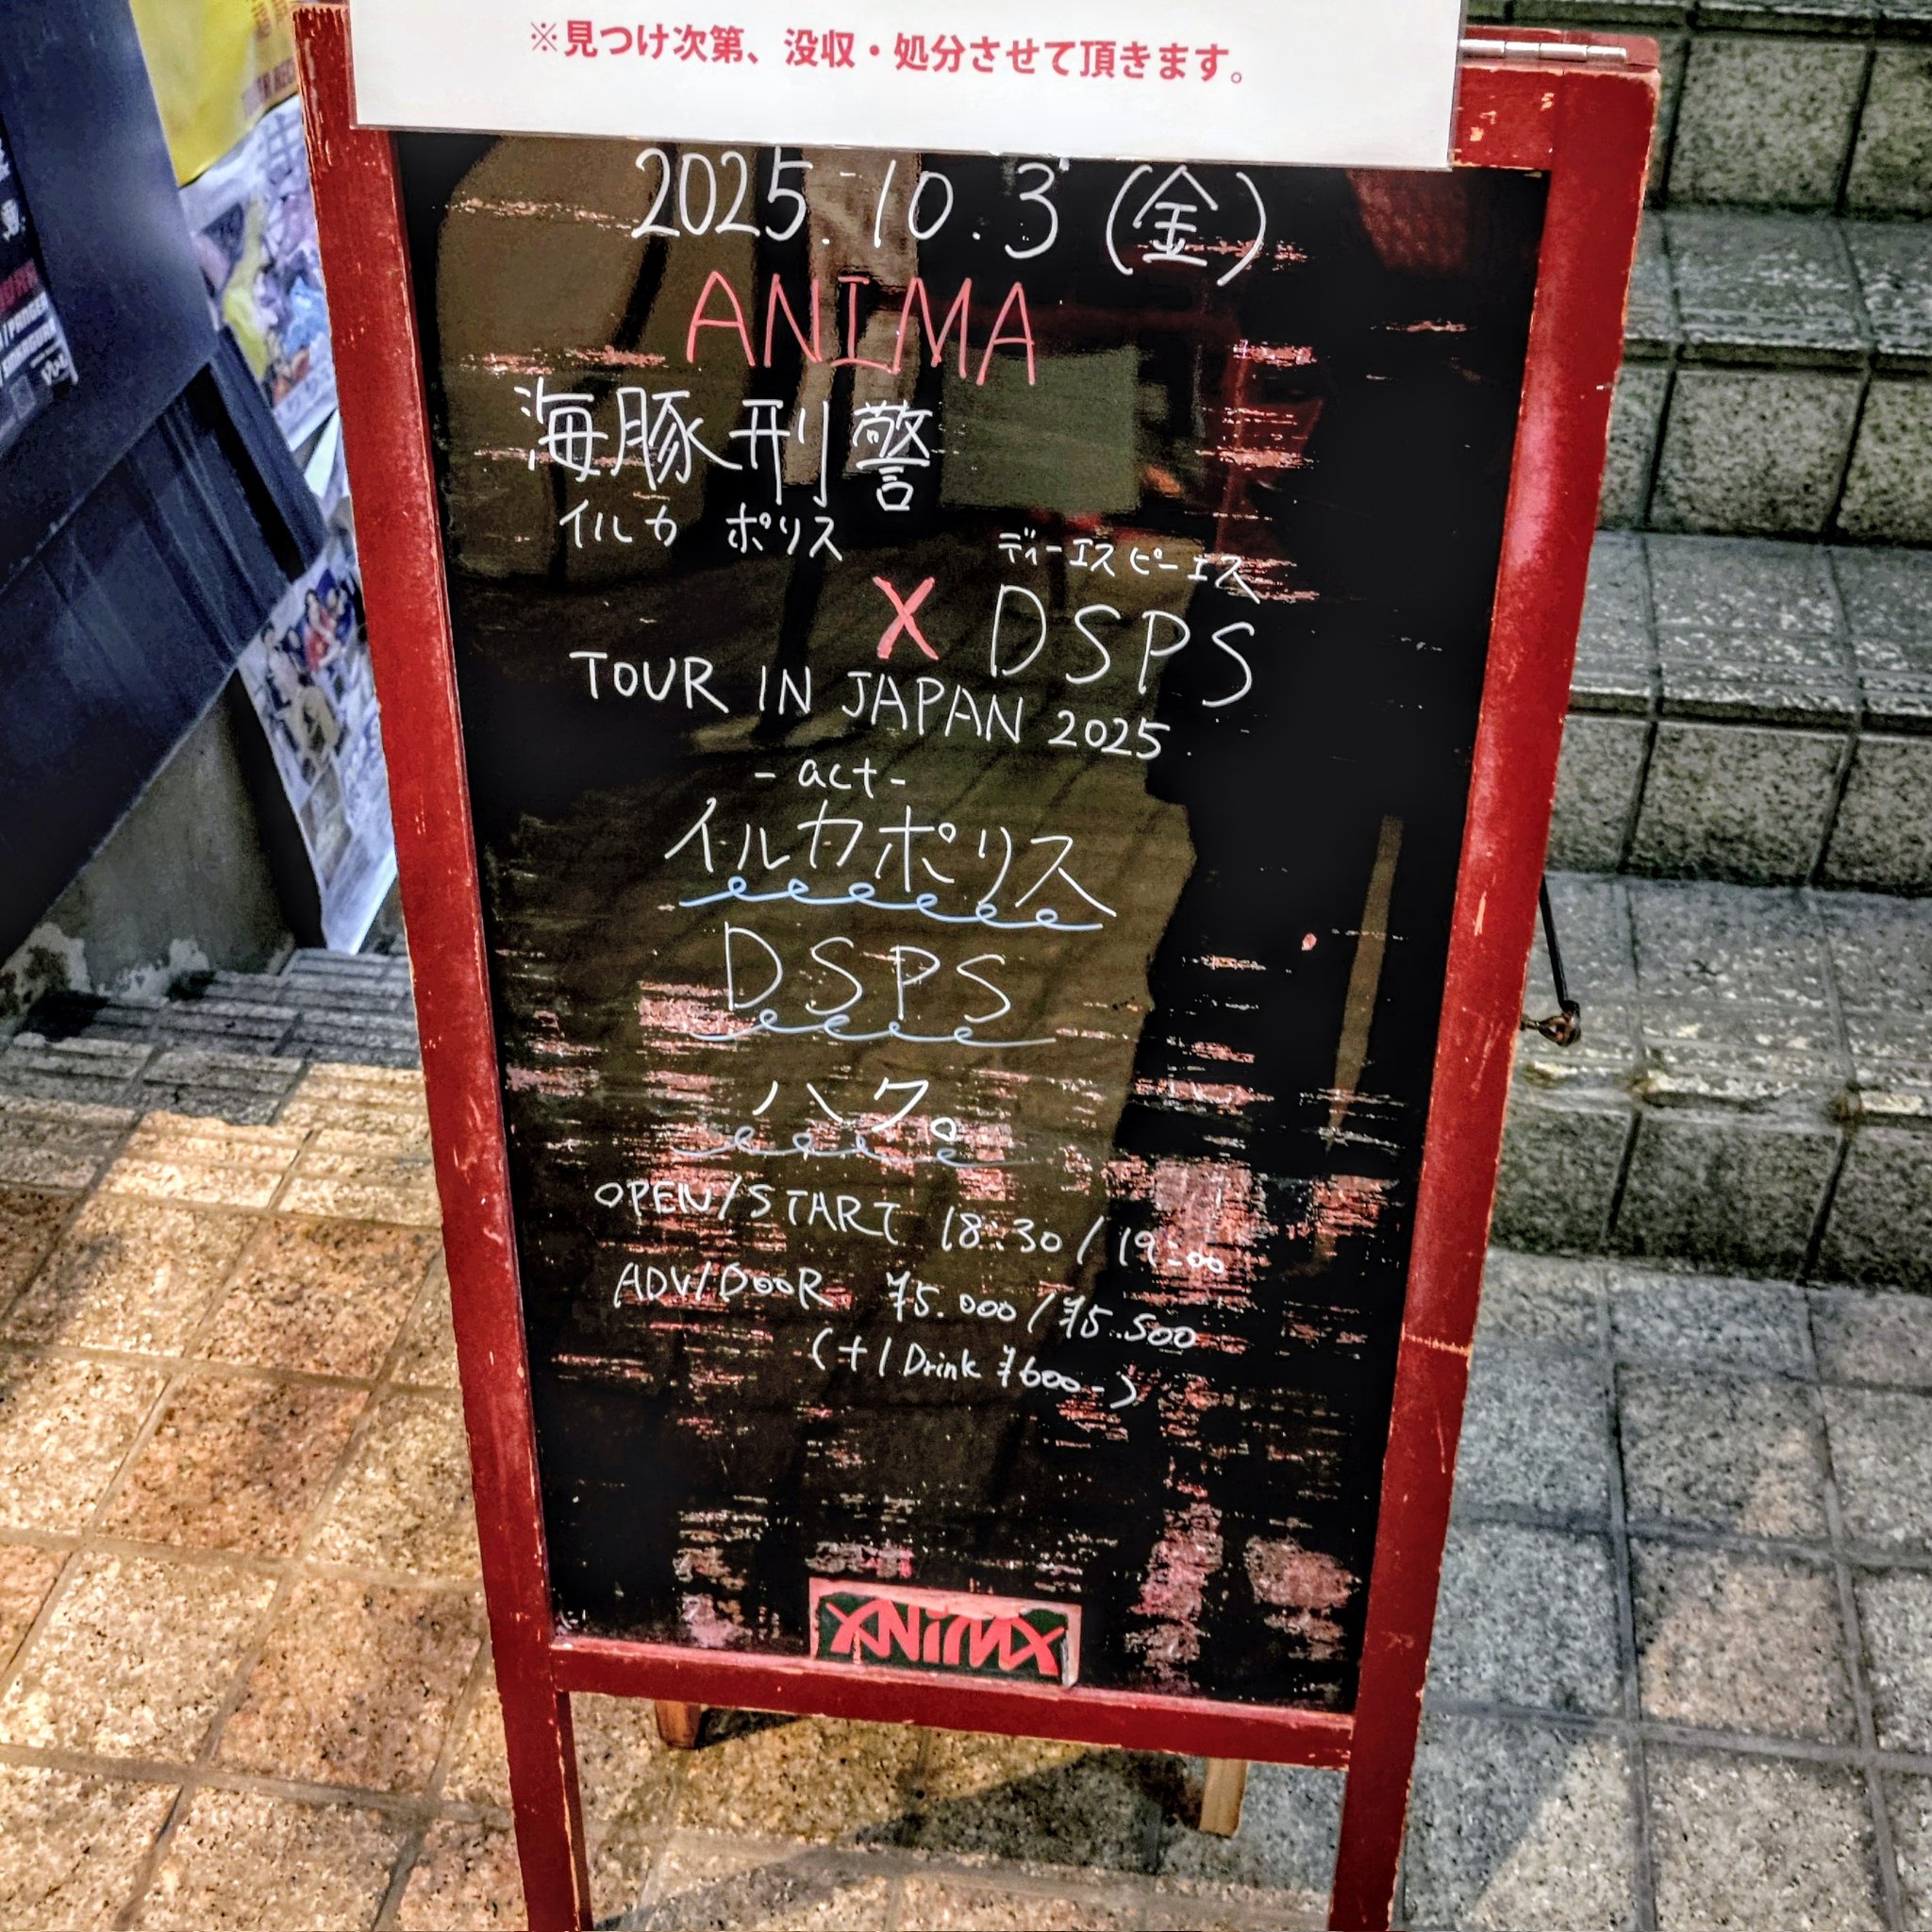 ※見つけ次第、没収・処分させて頂きます。
2025.10.3(金)
ANIMA
海豚刑警
イルカ ポリス
ディーエスピーエス
X DSPS
TOUR IN JAPAN 2025
-act-
イルカポリス
DSPS
ハク。
OPEN/START 18:30/19:00
ADV/DOOR ¥5.000/¥5.500
(+1Drink ¥600-)
ANIMA